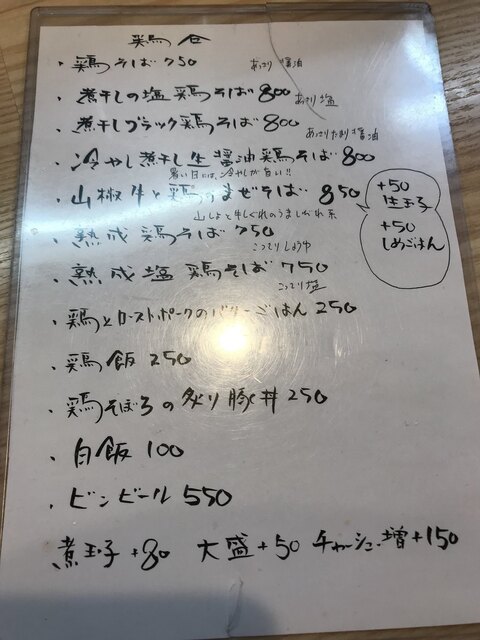 鶏谷
・鶏そば 750 あっさり醤油
・煮干しの塩 鶏そば 800 あっさり塩
・煮干しブラック鶏そば 800 あっさりたまり醤油
・冷やし煮干し生醤油鶏そば 800
暑い日には、冷やしが旨い!!
・山椒牛と鶏のまぜそば 850
+50 生玉子
+50 しめごはん
山しょと牛しぐれのうましびれ系
・熟成 鶏そば 750 こってりしょうゆ
・熟成塩 鶏そば 750
こってり塩
・鶏とローストポークのバターごはん 250
・鶏飯 250
・鶏そぼろの炙り豚丼 250
・白飯 100
・ビンビール 550
煮玉子 +80 大盛 +50 チャーシュー増 +150